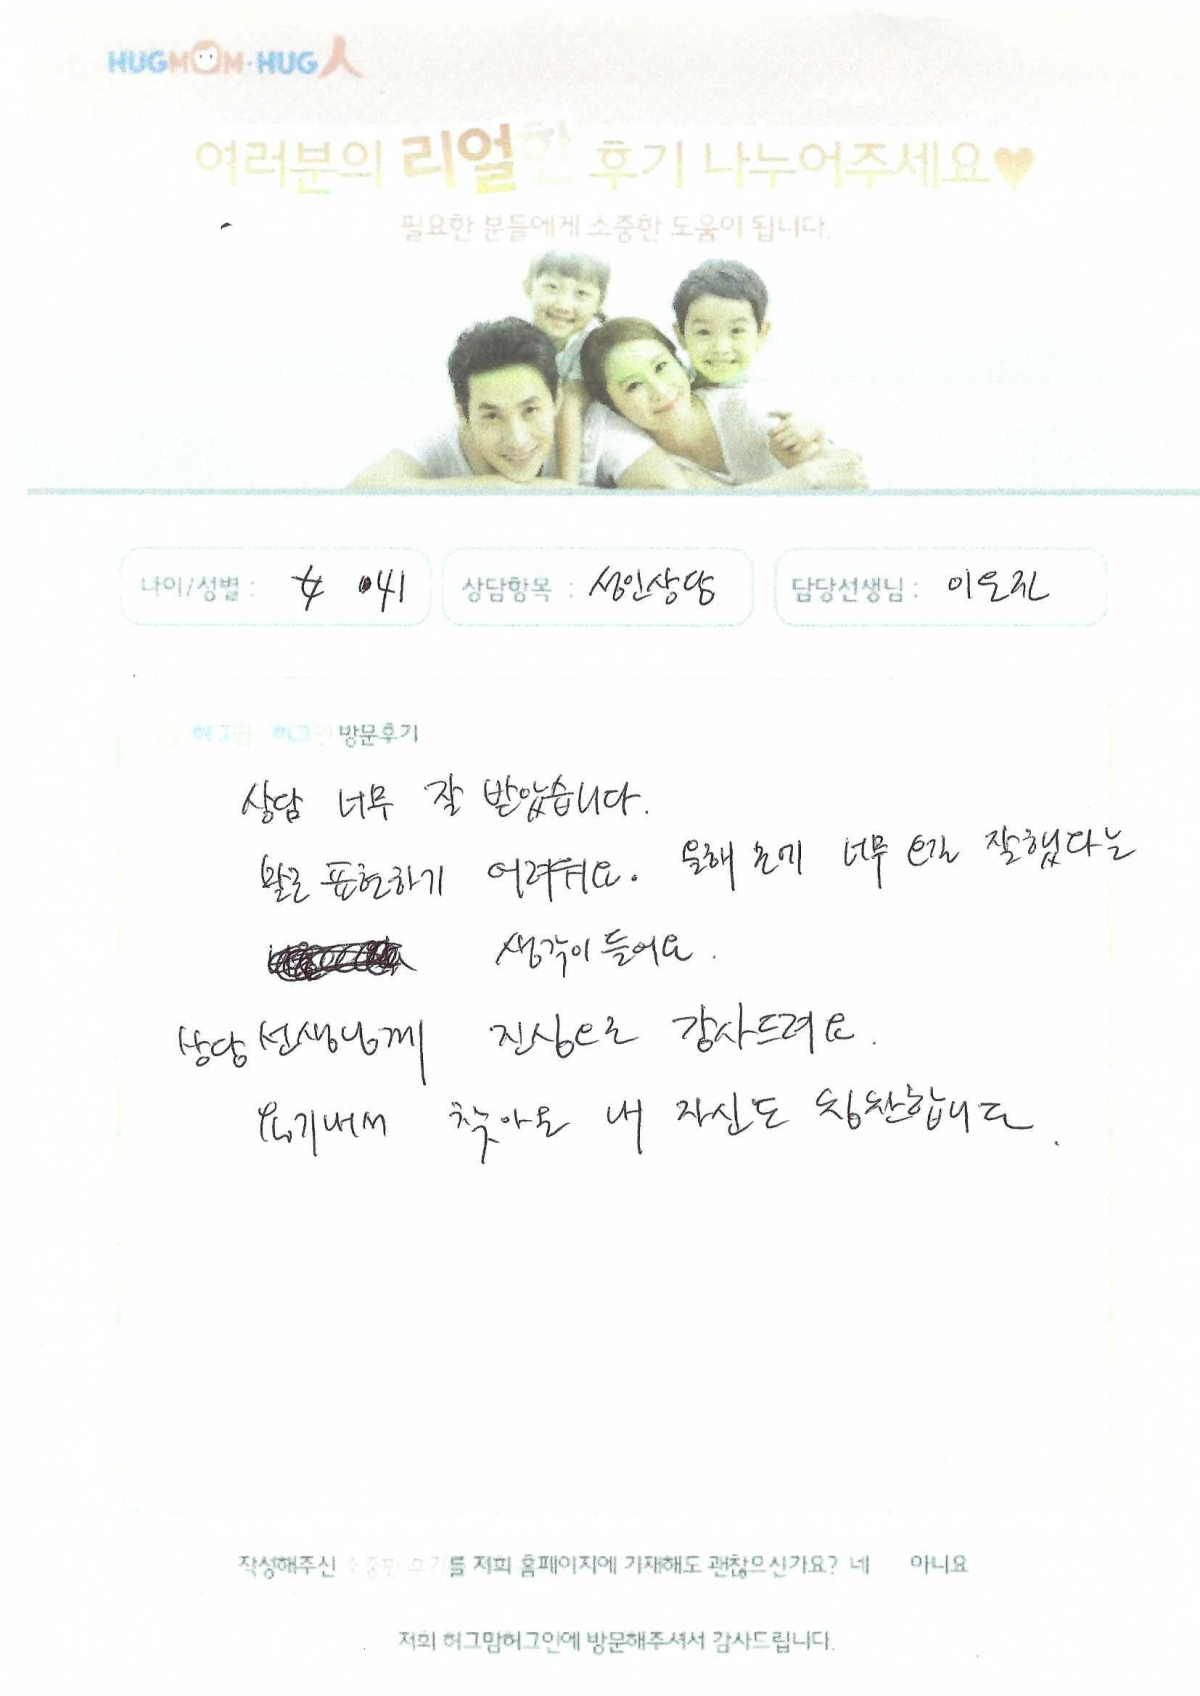 HUGMOM·HUG人
여러분의 리얼한 후기 나누어주세요♥
필요한 분들에게 소중한 도움이 됩니다.
나이/성별 : 女 41 상담항목 : 성인상담 담당선생님 : 이오진
허그맘 허그인 방문후기
상담 너무 잘 받았습니다.
말로 표현하기 어려워요. 올해 초에 너무 잘했다는
생각이 들어요.
상담 선생님께 진심으로 감사드려요.
용기내서 찾아온 내 자신도 칭찬합니다.
작성해주신 소중한 후기를 저희 홈페이지에 기재해도 괜찮으신가요? 네 아니요
저희 허그맘허그인에 방문해주셔서 감사드립니다.